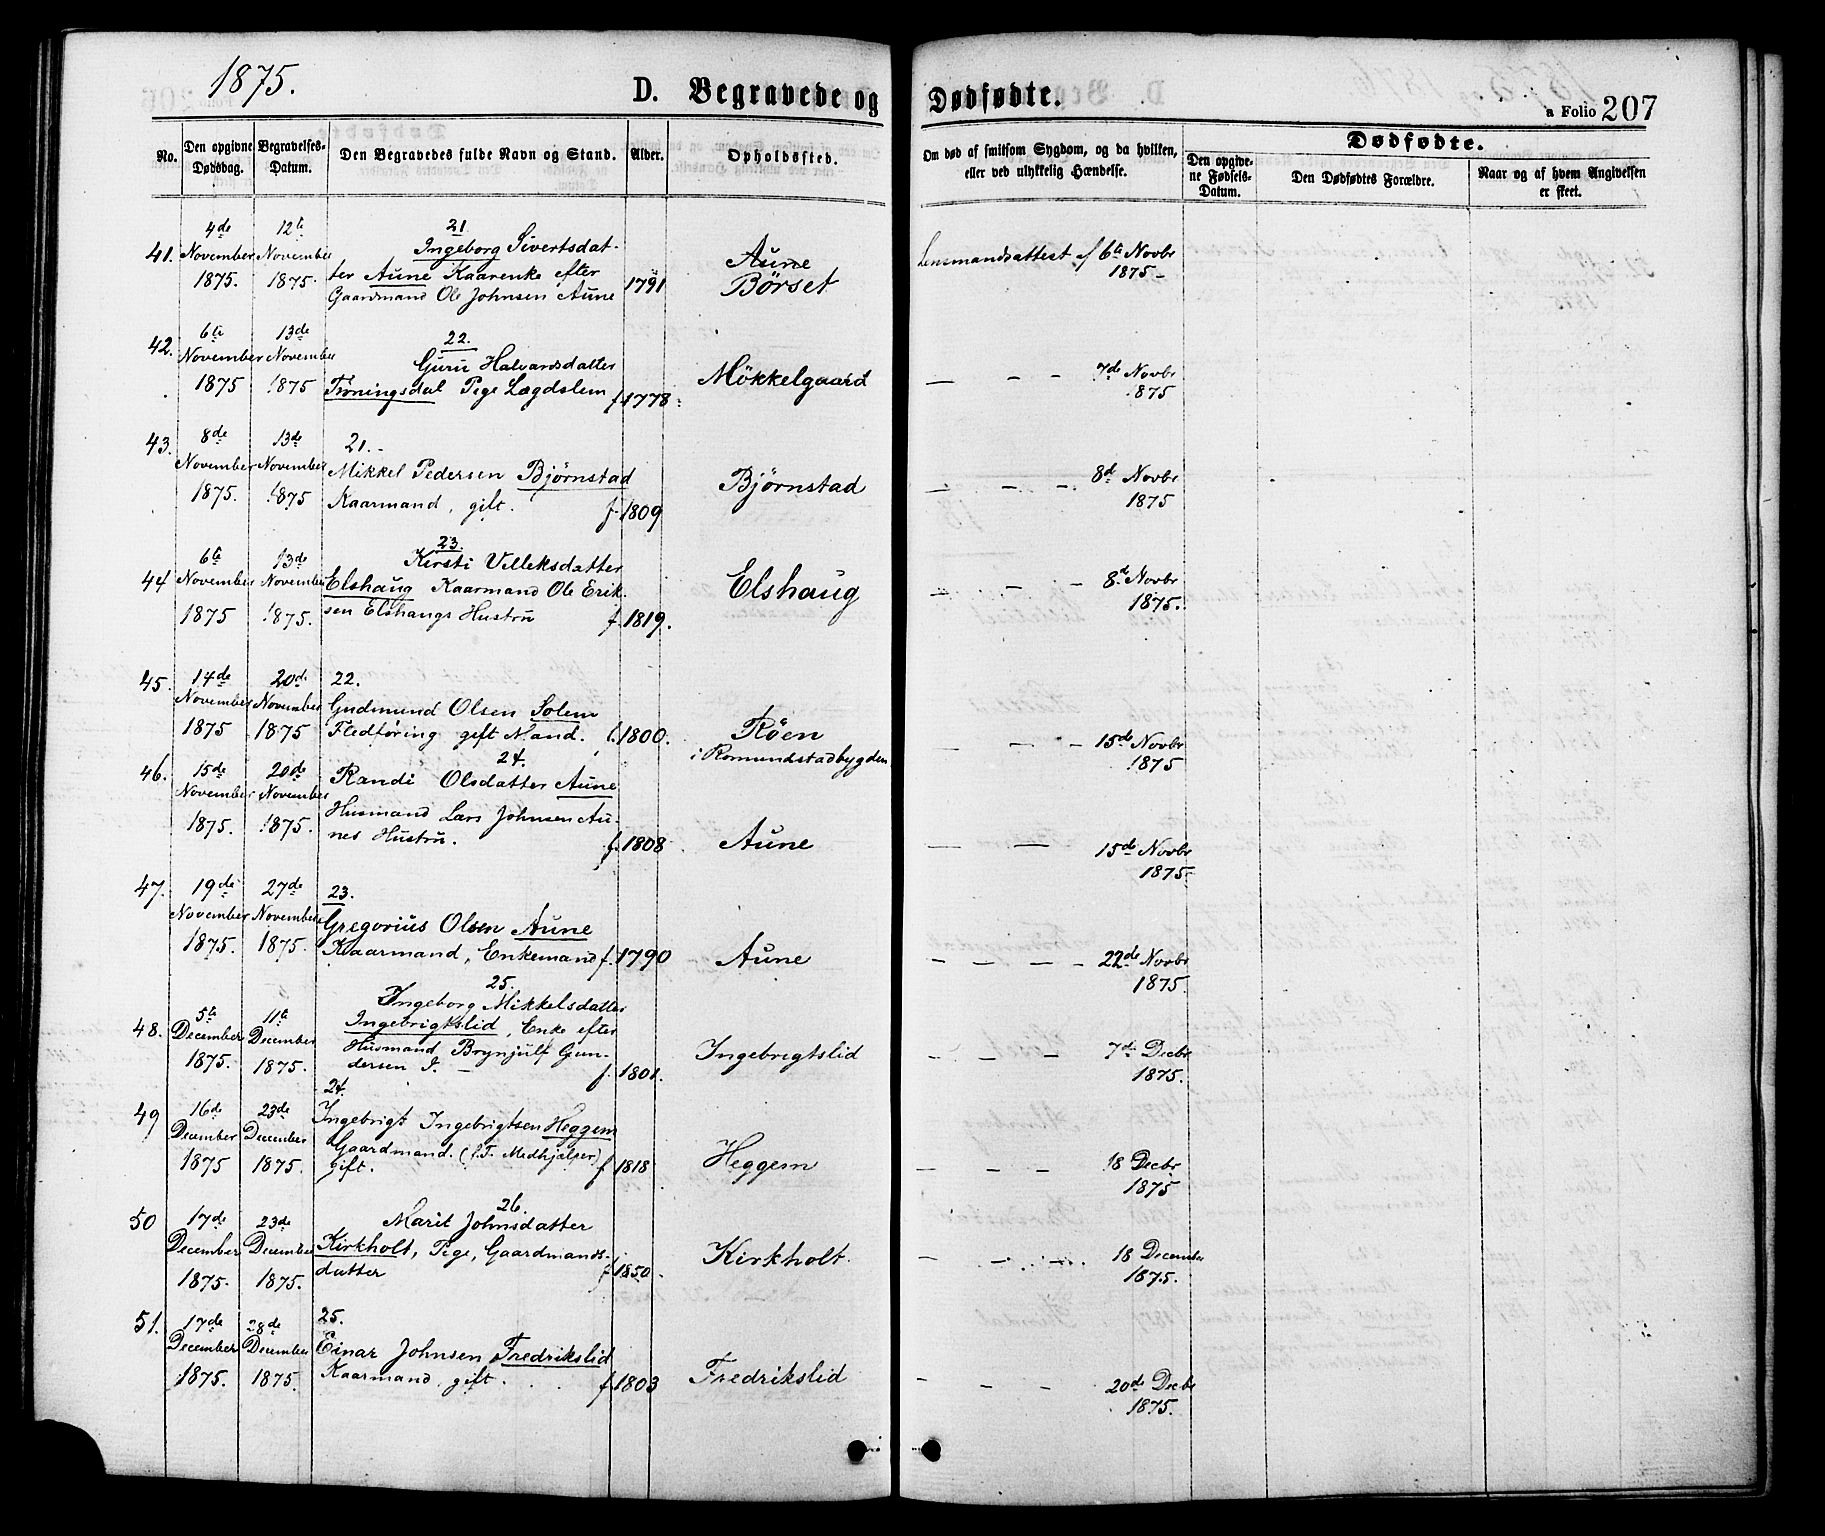 1875.
D. Begravede og Dødfødte.
a Folio 207
No.
Den opgivne Dødsdag.
Begravelses-Datum.
Den Begravedes fulde Navn og Stand.
Alder.
Opholdssted.
Om død af smitsom Sygdom, og da hvilken, eller ved ulykkelig Hændelse.
Dødfødte.
Den opgivne Fødsels-Datum.
Den Dødfødtes Forældre.
Naar og af hvem Angivelsen er skeet.
41. 4de November 1875. 12te November 1875.
21
Ingeborg Sivertsdat-
ter Aune Kaarenke efter
Gaardmand Ole Johnsen Aune 1791
Aune
Børset
Lensmandsattest af 6te Novbr 1875 –
42. 6te November 1875 13de November 1875
22.
Guru Halvardsdatter
Trøningsdal Pige Lægdslem f. 1778
Møkkelgaard
— – – 7de Novbr 1875
43. 8de November 1875. 13de November 1875
21.
Mikkel Pedersen Bjørnstad
Kaarmand, gift. f. 1809
Bjørnstad
— – – 8de Novbr 1875
44 6te November 1875 13de November 1875.
23.
Kirsti Villeksdatter
Elshaug Kaarmand Ole Erik-
sen Elshaugs Hustru f. 1819.
Elshaug
– – – 8de Novbr 1875.
45. 14de November 1875 20de November 1875
22.
Gudmund Olsen Solem
Fledføring gift Mand. f. 1800.
Røen
i Romundstadbygden
— – – 15de Novbr 1875
46. 15de November 1875. 20de November 1875.
24.
Randi Olsdatter Aune
Husmand Lars Johnsen Au-
nes Hustru. f. 1808
Aune
— — 15de Novbr 1875
47. 19de November 1875. 27de November 1875.
23.
Gregorius Olsen Aune
Kaarmand, Enkemand f. 1790
Aune
– – – – 22de Novbr 1875.
48. 5te December 1875. 11te December 1875.
25.
Ingeborg Mikkelsdatter
Ingebrigtslid, Enke efter
Husmand Brynjulf Gun-
dersen I. – f. 1801.
Ingebrigtslid
– – – 7de Decbr 1875.
49 16de December 1875 23de December 1875.
24.
Ingebrigt Ingebrigtsen Heggem
Gaardmand. (f.T. Medhjælper)
gift. f. 1818
Heggem
– – – 18 Decbr 1875
50 17de December 1875. 23de December 1875.
26.
Marit Johnsdatter
Kirkholt, Pige, Gaardmands-
datter f. 1850
Kirkholt.
– – – 18 December 1875.
51. 17de December 1875. 28de December 1875.
25.
Einar Johnsen Fredrikslid
Kaarmand, gift. f. 1803
Fredrikslid
– – – 20de Decbr 1875.